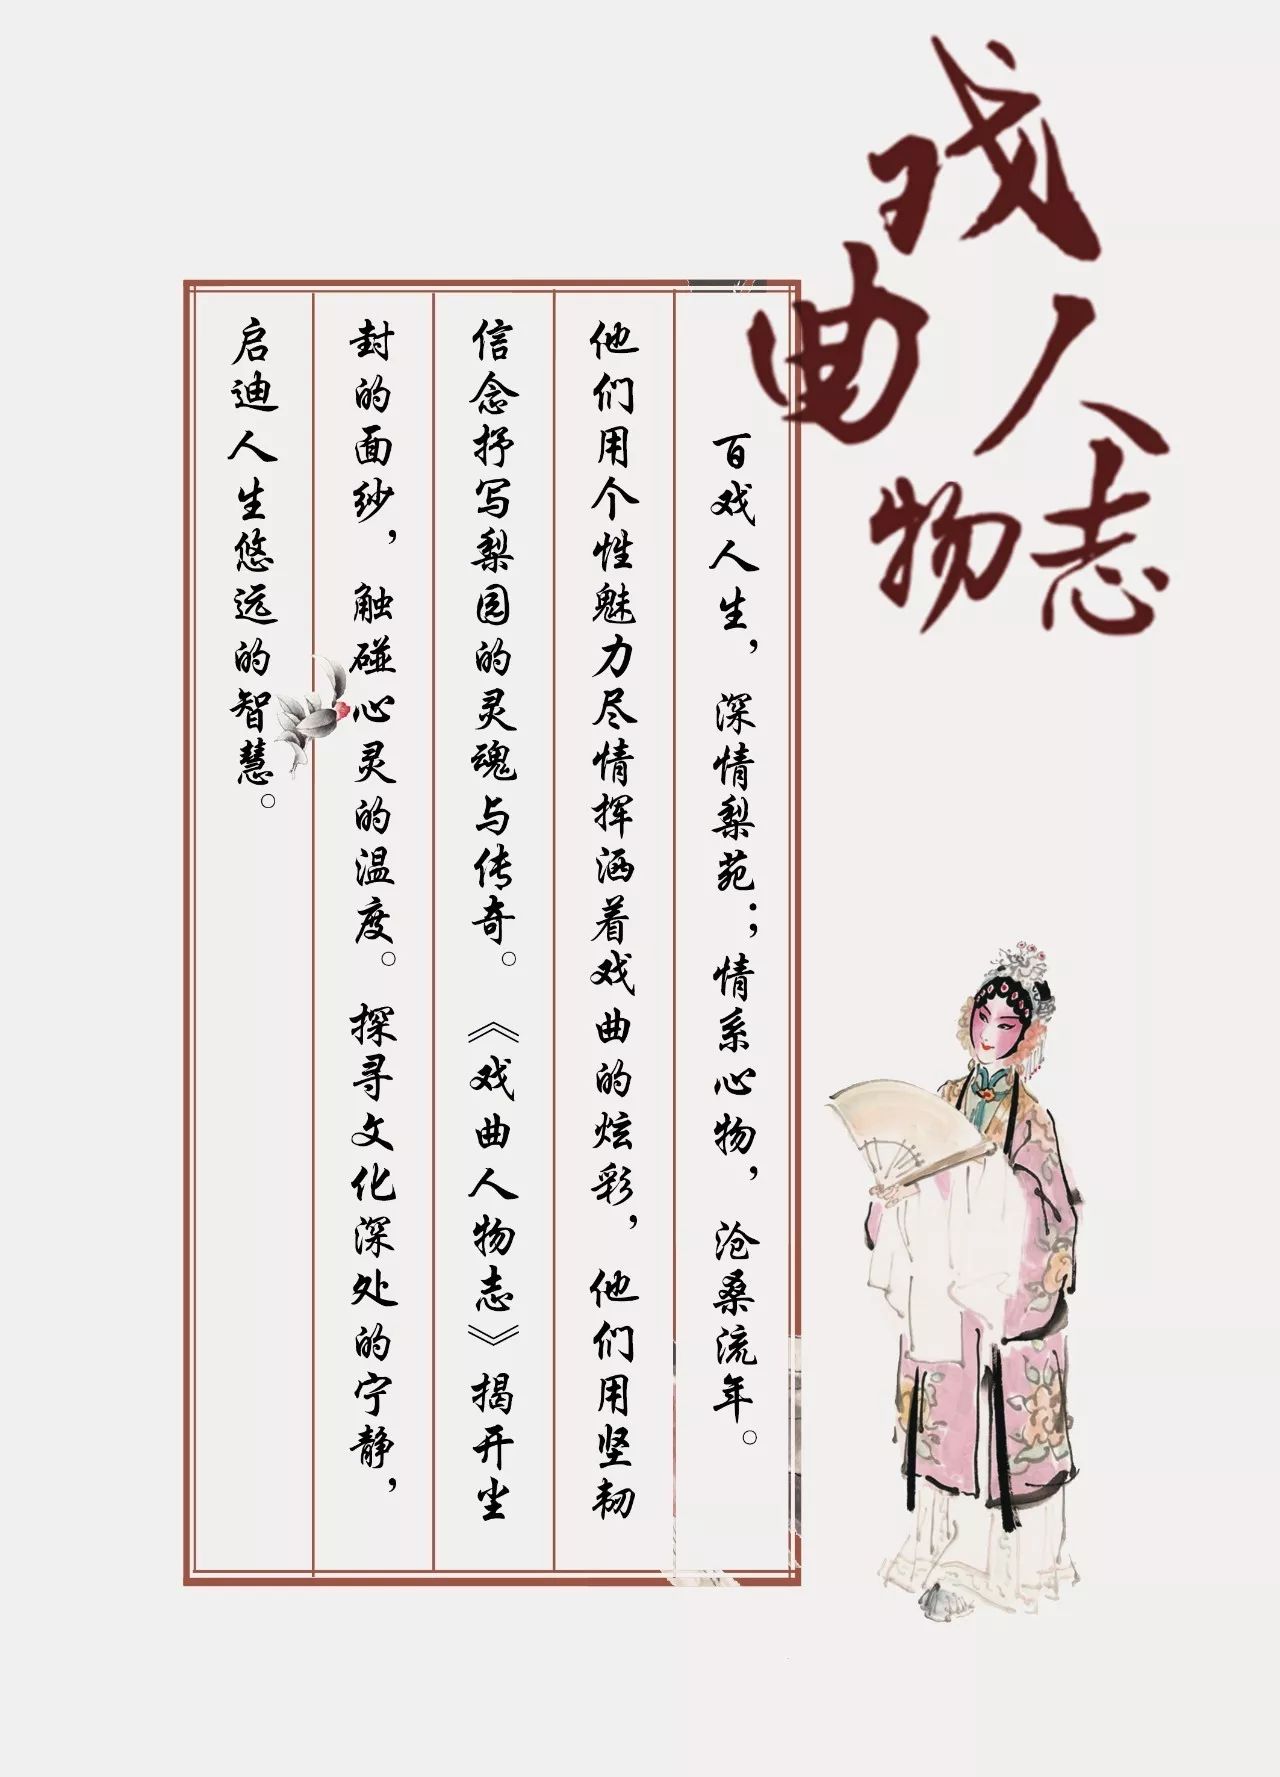 戏曲人物志
百戏人生，深情梨苑；情系心物，沧桑流年。
他们用个性魅力尽情挥洒着戏曲的炫彩，他们用坚韧
信念抒写梨园的灵魂与传奇。《戏曲人物志》揭开尘
封的面纱，触碰心灵的温度。探寻文化深处的宁静，
启迪人生悠远的智慧。